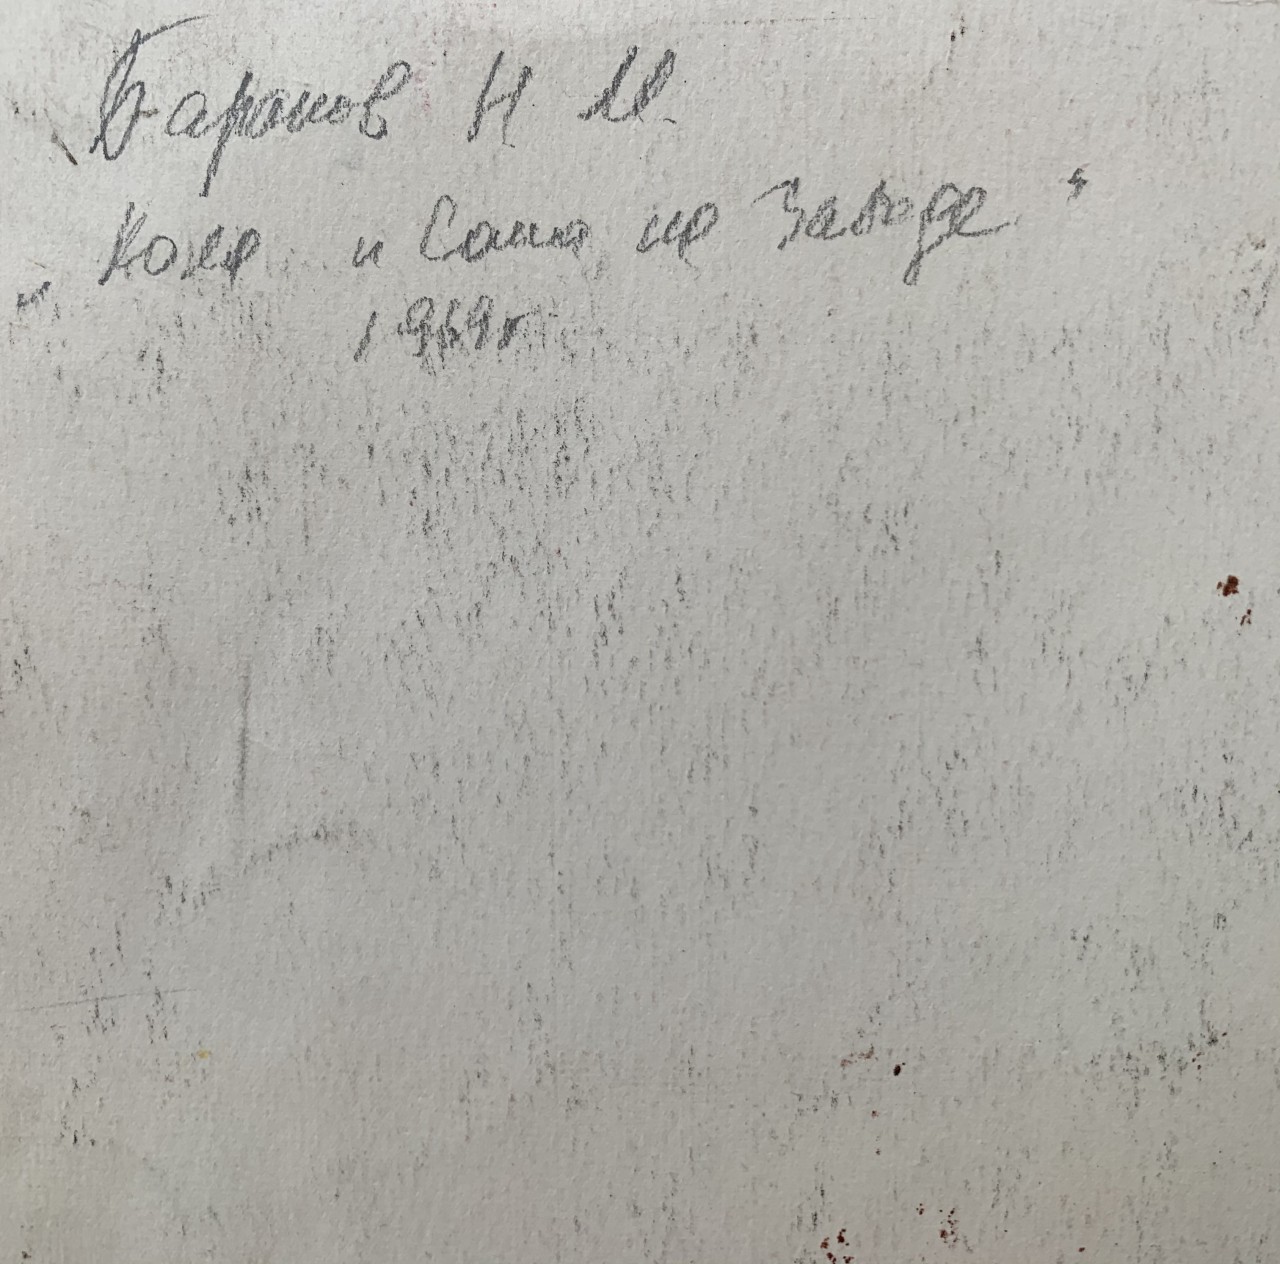 Баранов Н М.
„Коля и Саша на Заводе"
1969г